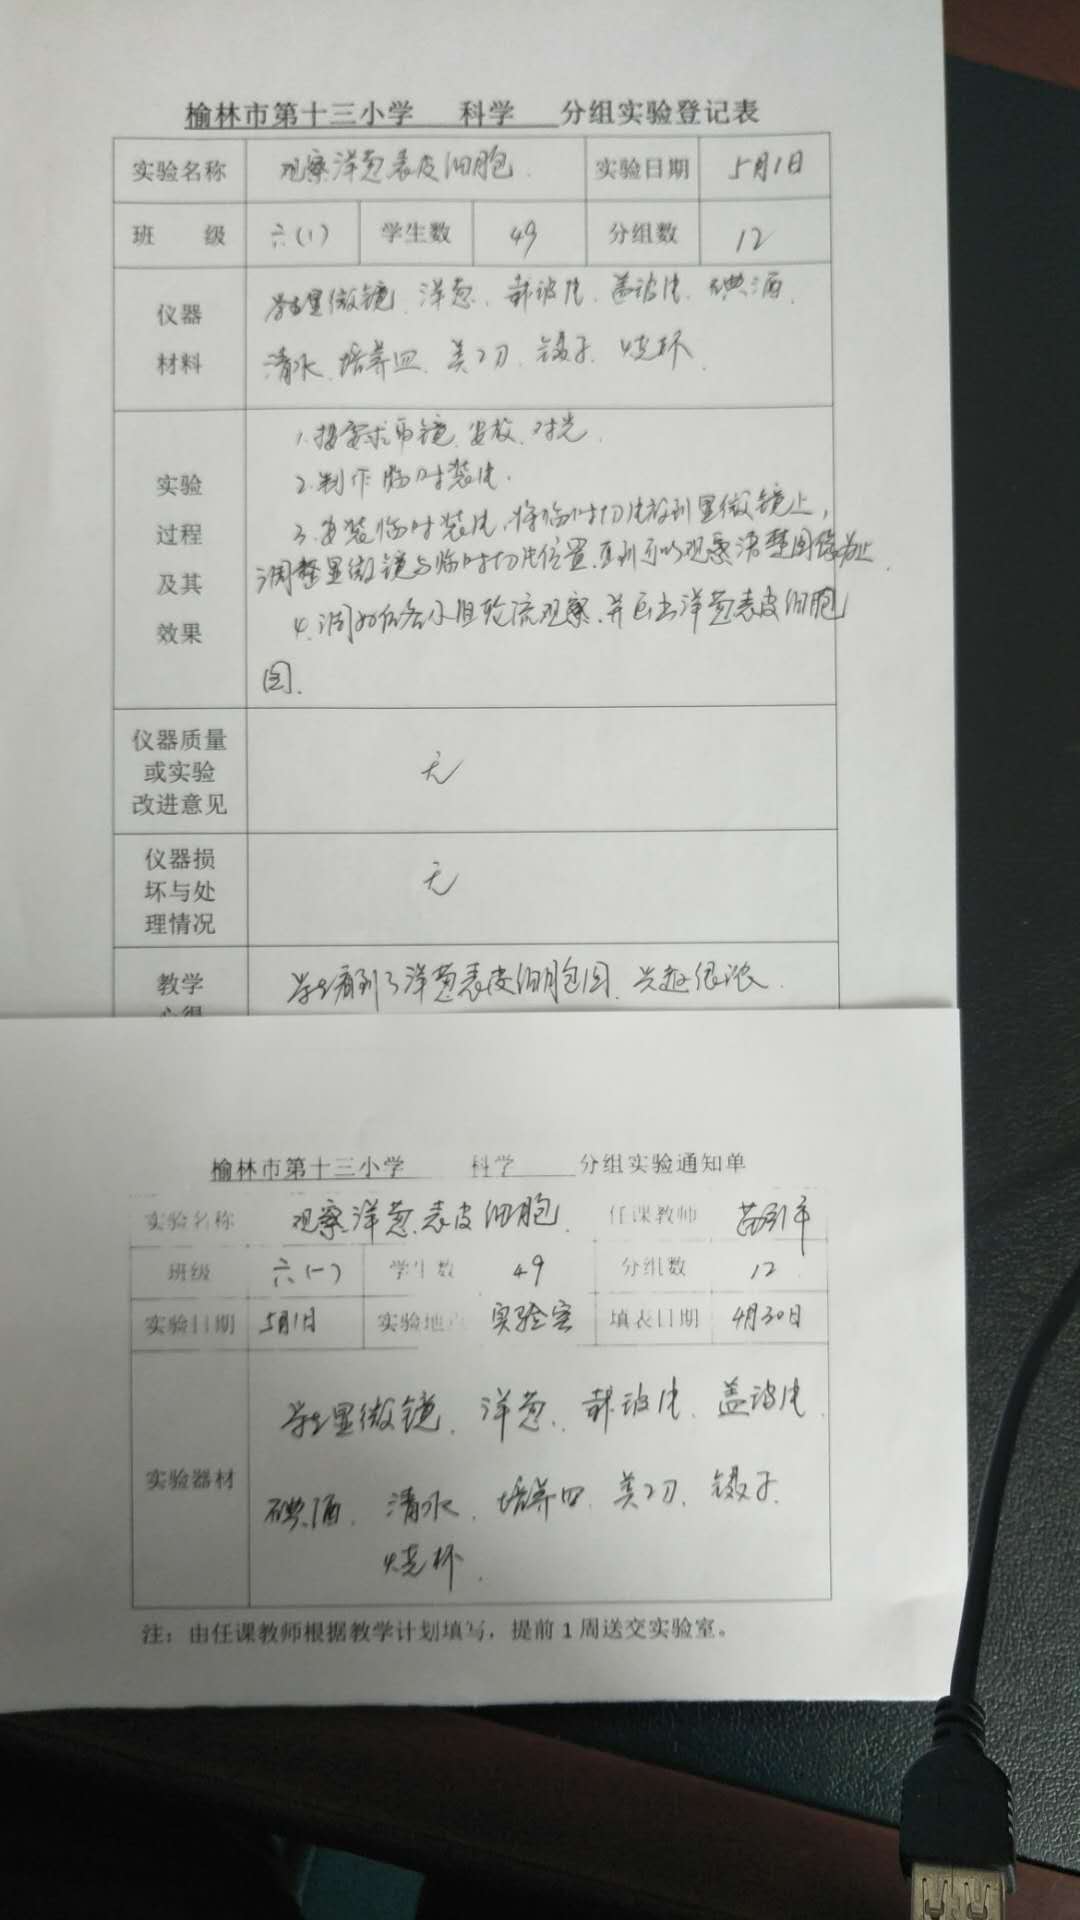 榆林市第十三小学 科学 分组实验登记表
实验名称 观察洋葱表皮细胞. 实验日期 5月1日
班 级 六(1) 学生数 49 分组数 12
仪器
材料
学生显微镜、洋葱、载玻片、盖玻片、碘酒、
清水、培养皿、美刀、镊子、烧杯.
实验
过程
及其
效果
1.按要求 镜、安放、对光.
2.制作临时装片.
3.安装临时装片,将临时切片放到显微镜上,
调整显微镜与临时切片位置,直到可以观察清楚图像为止.
4.调好后各小组轮流观察,并画出洋葱表皮细胞
图.
仪器质量
或实验
改进意见
无
仪器损
坏与处
理情况
无
教学
心得
学生看到了洋葱表皮细胞图、兴趣很浓.
榆林市第十三小学 科学 分组实验通知单
实验名称 观察洋葱表皮细胞. 任课教师
班级 六(一) 学生数 49 分组数 12
实验日期 5月1日 实验地点 实验室 填表日期 4月30日
实验器材
学生显微镜、洋葱、载玻片、盖玻片、
碘酒、清水、培养皿、美刀、镊子、
烧杯.
注：由任课教师根据教学计划填写，提前1周送交实验室。